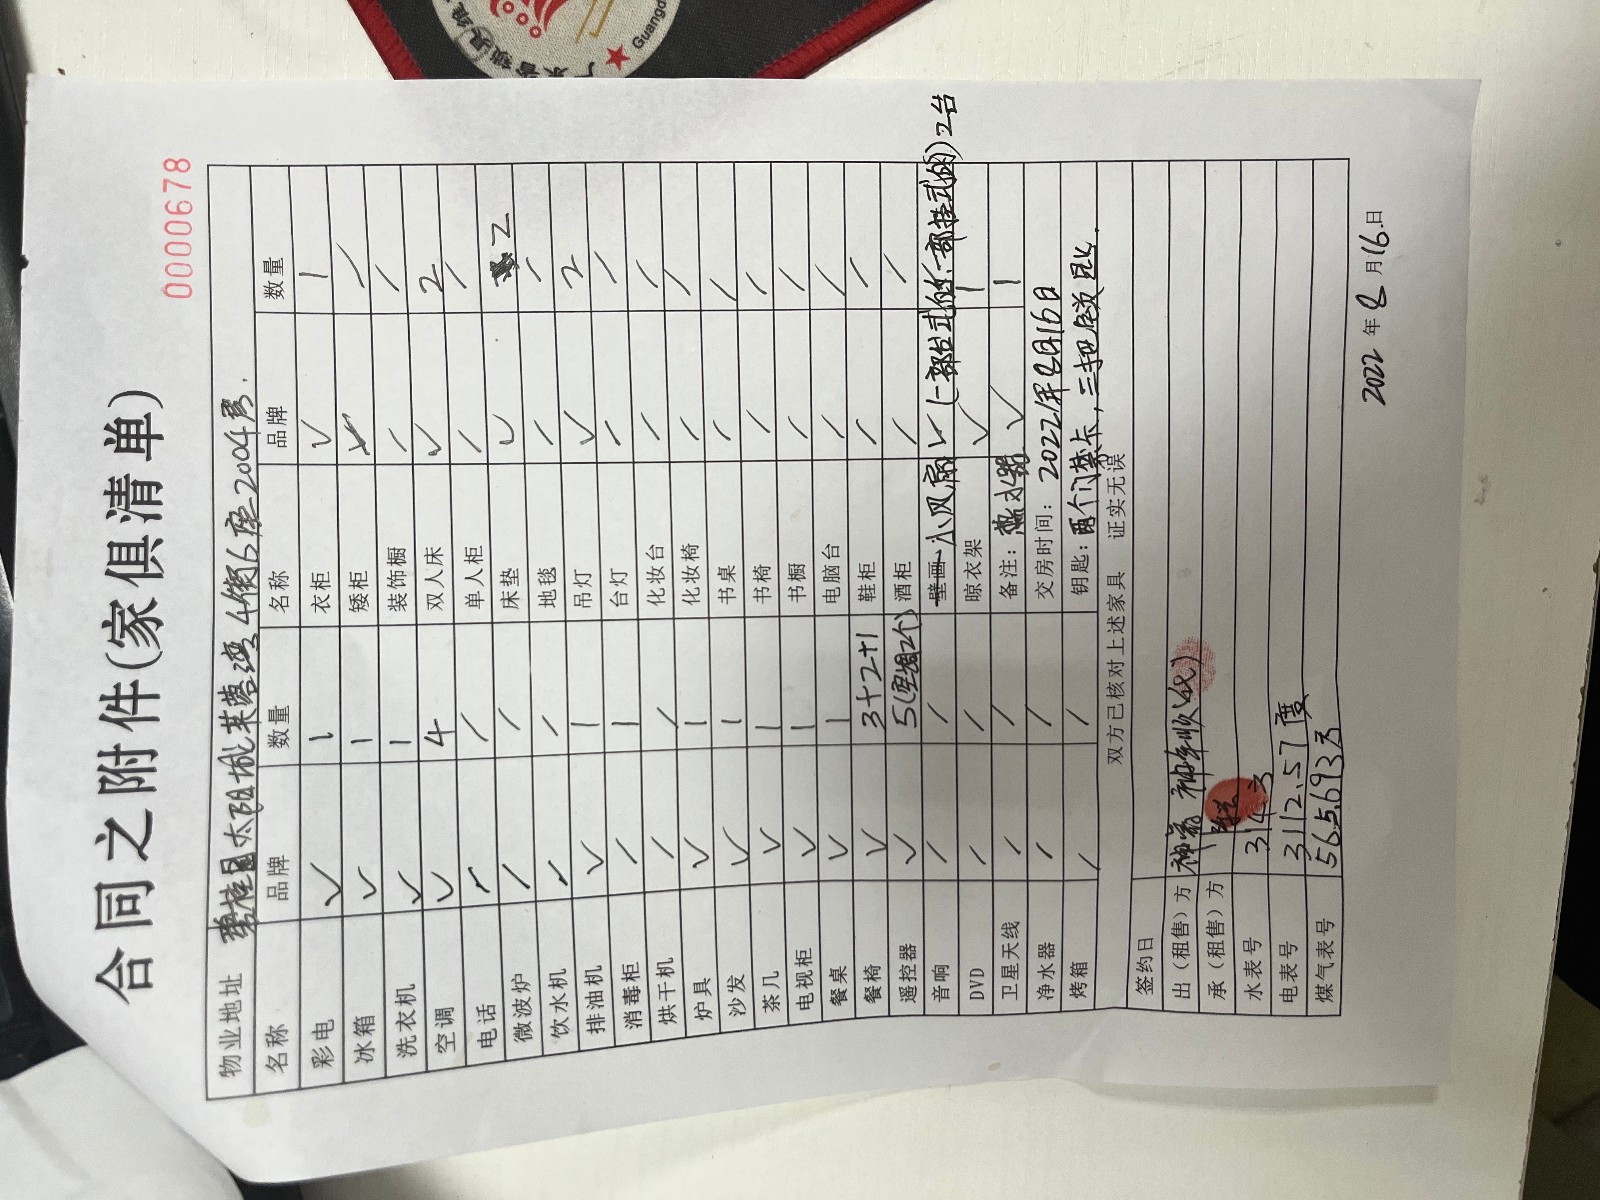 Guangd
0000678
合同之附件(家俱清单)
物业地址 碧桂园太阳城北芙蓉湾4街6座2004房.
名称 品牌 数量 名称 品牌 数量
彩电 ✓ 1 衣柜 ✓ 1
冰箱 ✓ 1 矮柜 /
洗衣机 ✓ 1 装饰橱 / /
空调 ✓ 4 双人床 ✓ 2
电话 / 单人柜 / /
微波炉 / / 床垫 ✓ 2
饮水机 / / 地毯 / /
排油机 ✓ 1 吊灯 ✓ 2
消毒柜 / 1 台灯 / /
烘干机 / / 化妆台 / /
炉具 ✓ 1 化妆椅 / /
沙发 ✓ 1 书桌 / /
茶几 ✓ 1 书椅 / /
电视柜 ✓ 1 书橱 / /
餐桌 ✓ 1 电脑台 / /
餐椅 ✓ 3+2+1 鞋柜 / /
遥控器 ✓ 5(空调2个) 酒柜 / /
音响 / / 壁画 小风扇 ✓ (一部台式的,一部挂式的)2台
DVD / / 晾衣架 ✓ 1
卫星天线 / / 备注: 热水器 ✓ 1
净水器 / / 交房时间: 2022年8月16日
烤箱 / / 钥匙: 两个门禁卡,三把钥匙.
双方已核对上述家具 证实无误
签约日
出(租售)方
承(租售)方
水表号 314方
电表号 3112.57度
煤气表号 565.693方
2022年8月16日